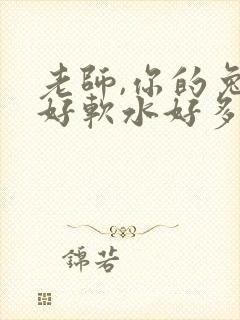 老師,你的兔
好軟水好多
錦若